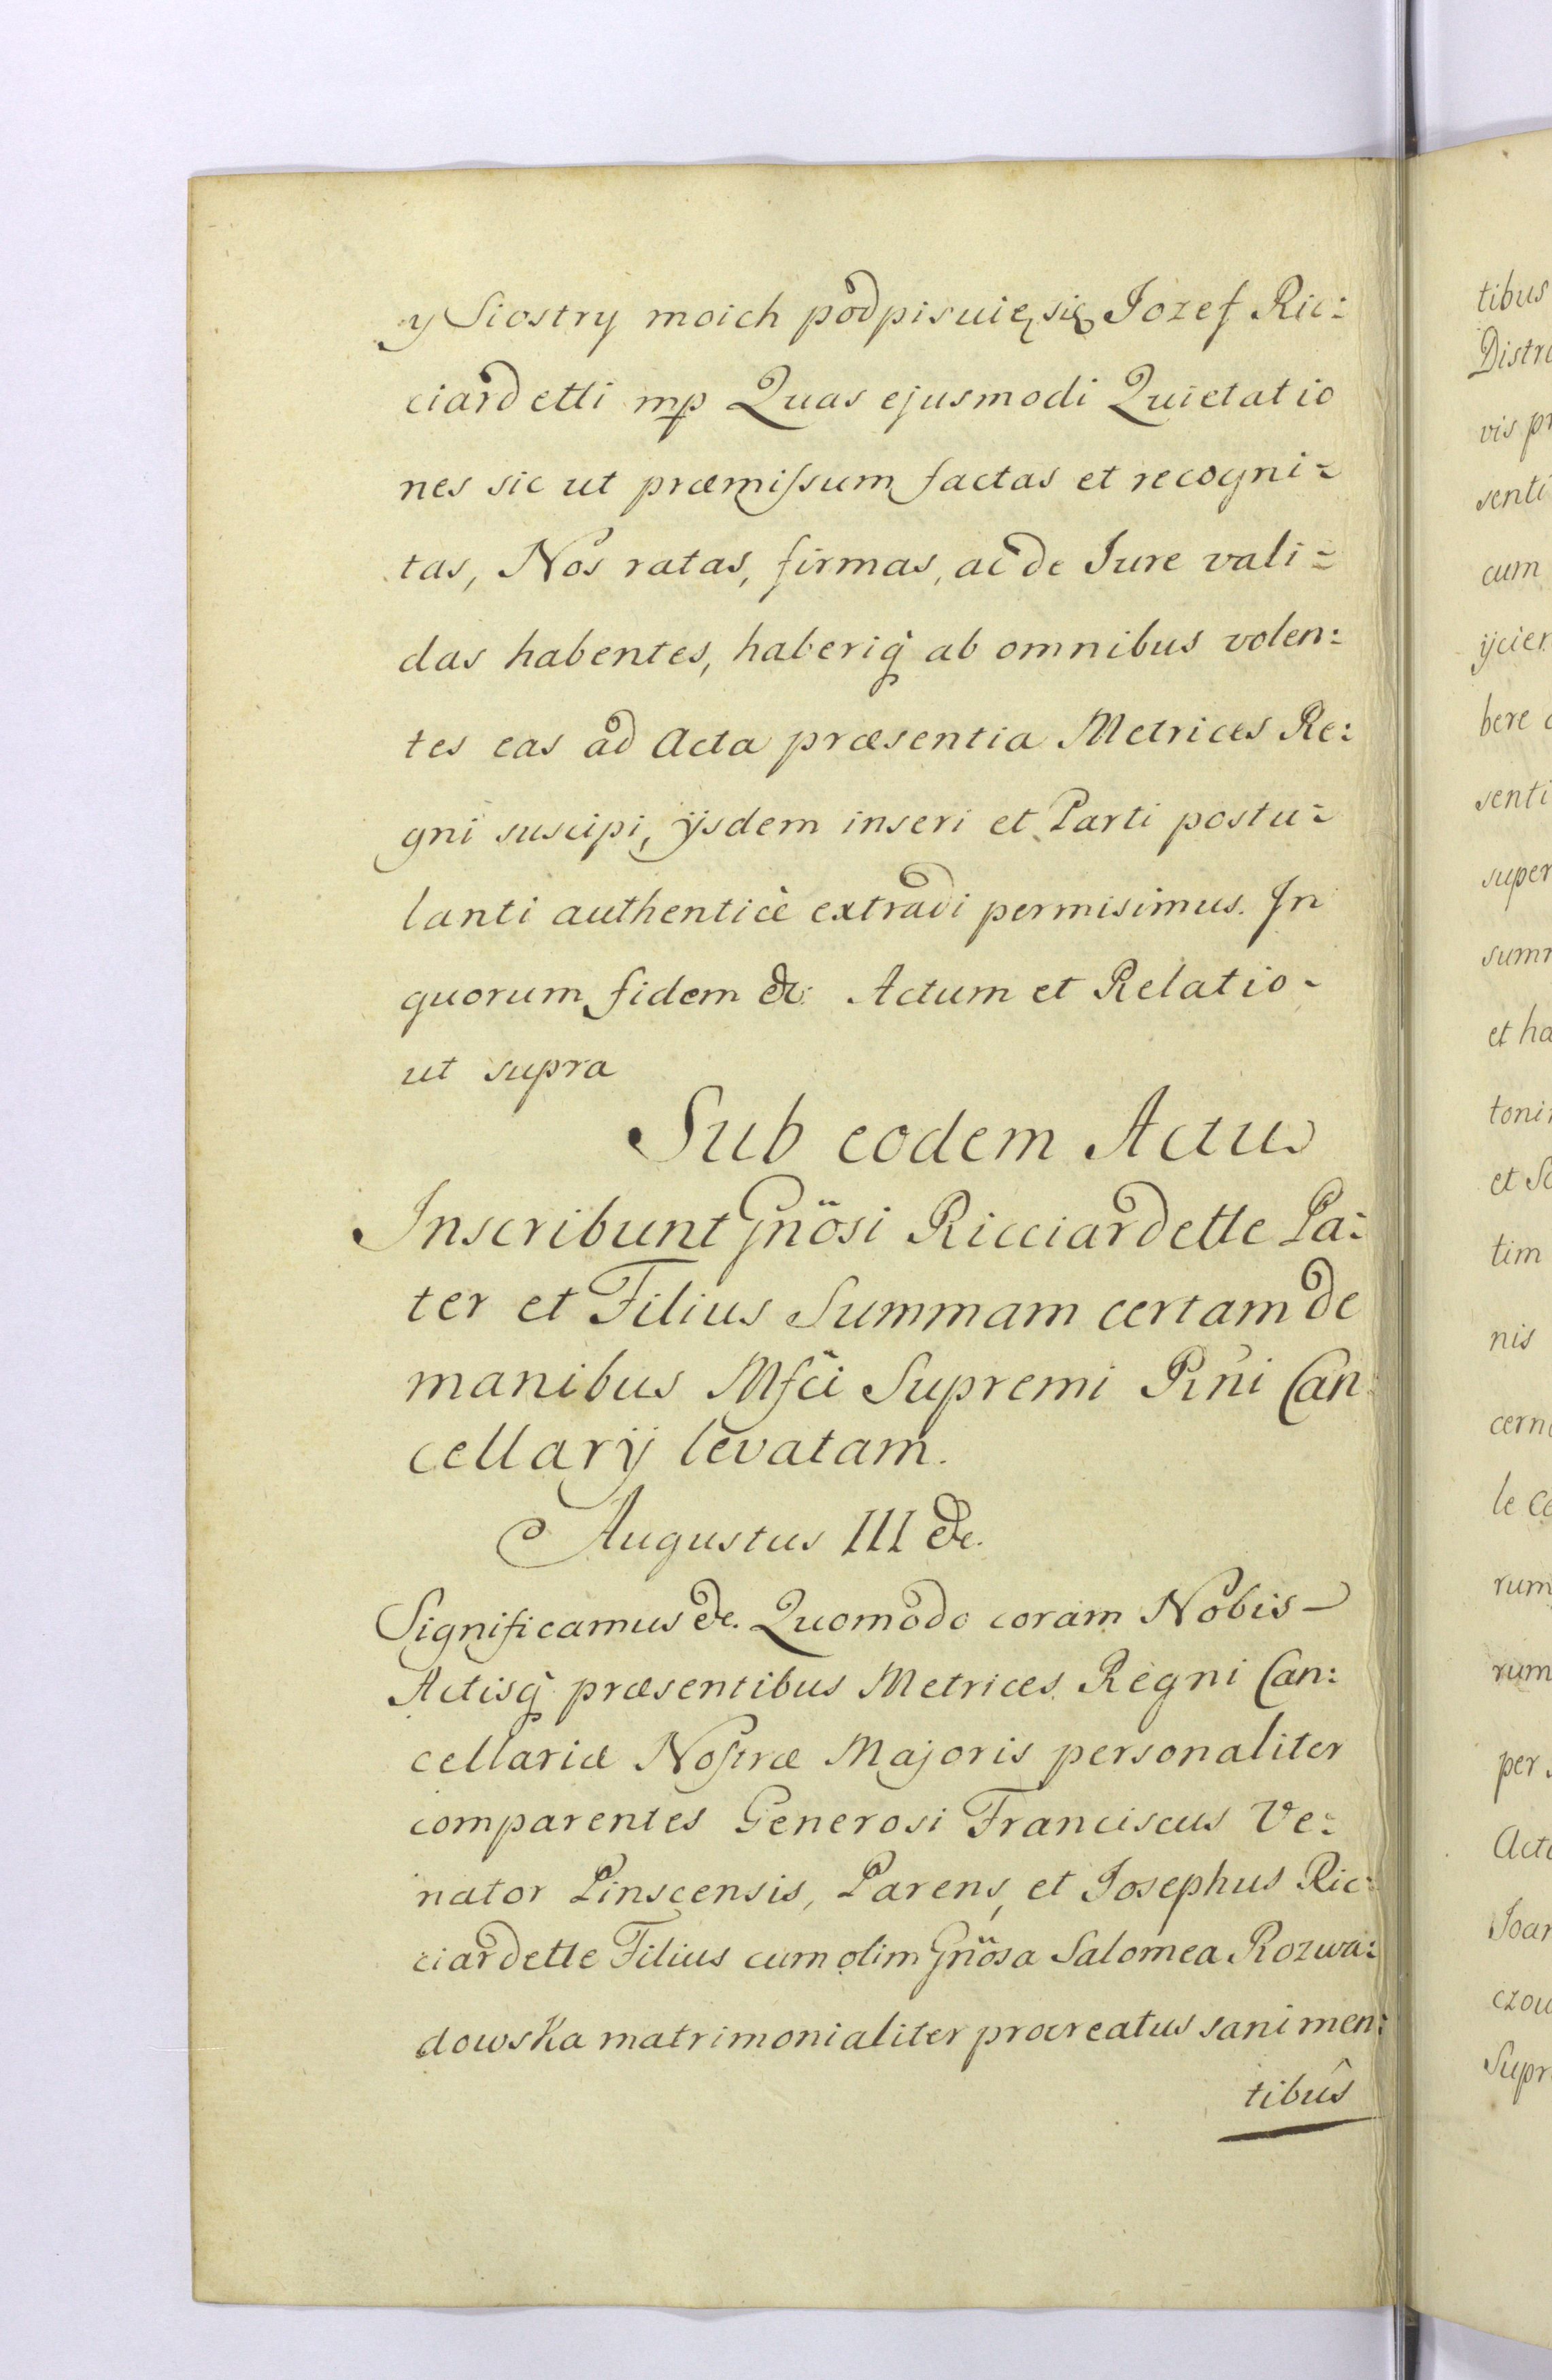 y Siostry moich podpisuię się Jozef Ric:
ciardetti mp Quas ejusmodi Quietatio
nes sic ut præmissum factas et recogni=
tas, Nos ratas, firmas, ac de Jure vali=
das habentes, haberiq̀ ab omnibus volen:
tes eas ad Acta præsentia Metrices Re:
gni suscipi, ijsdem inseri et Parti postu=
lanti authenticè extradi permisimus. In
quorum fidem &c: Actum et Relatio-
ut supra
Sub eodem Actu
Inscribunt Gnösi Ricciardette Pa:
ter et Filius Summam certam de
manibus Mfci Supremi Rni Can:
cellarij levatam.
Augustus III &c.
Significamus &c. Quomodo coram Nobis-
Actisq̀ præsentibus Metrices Regni Can:
cellariæ Nostræ Majoris personaliter
comparentes Generosi Franciscus Ve:
nator Pinscensis, Parens, et Josephus Ric:
ciardette Filius cum olim Gnösa Salomea Rozwa:
dowska matrimonialiter procreatus sani men:
tibûs
tibus
Distri
vis pr
senti
cum
ijcien
bere
senti
super
summ
et ha
toni
et
tim
nis
cern
le
rum
rum
per
Acti
Joan
czow
Supr